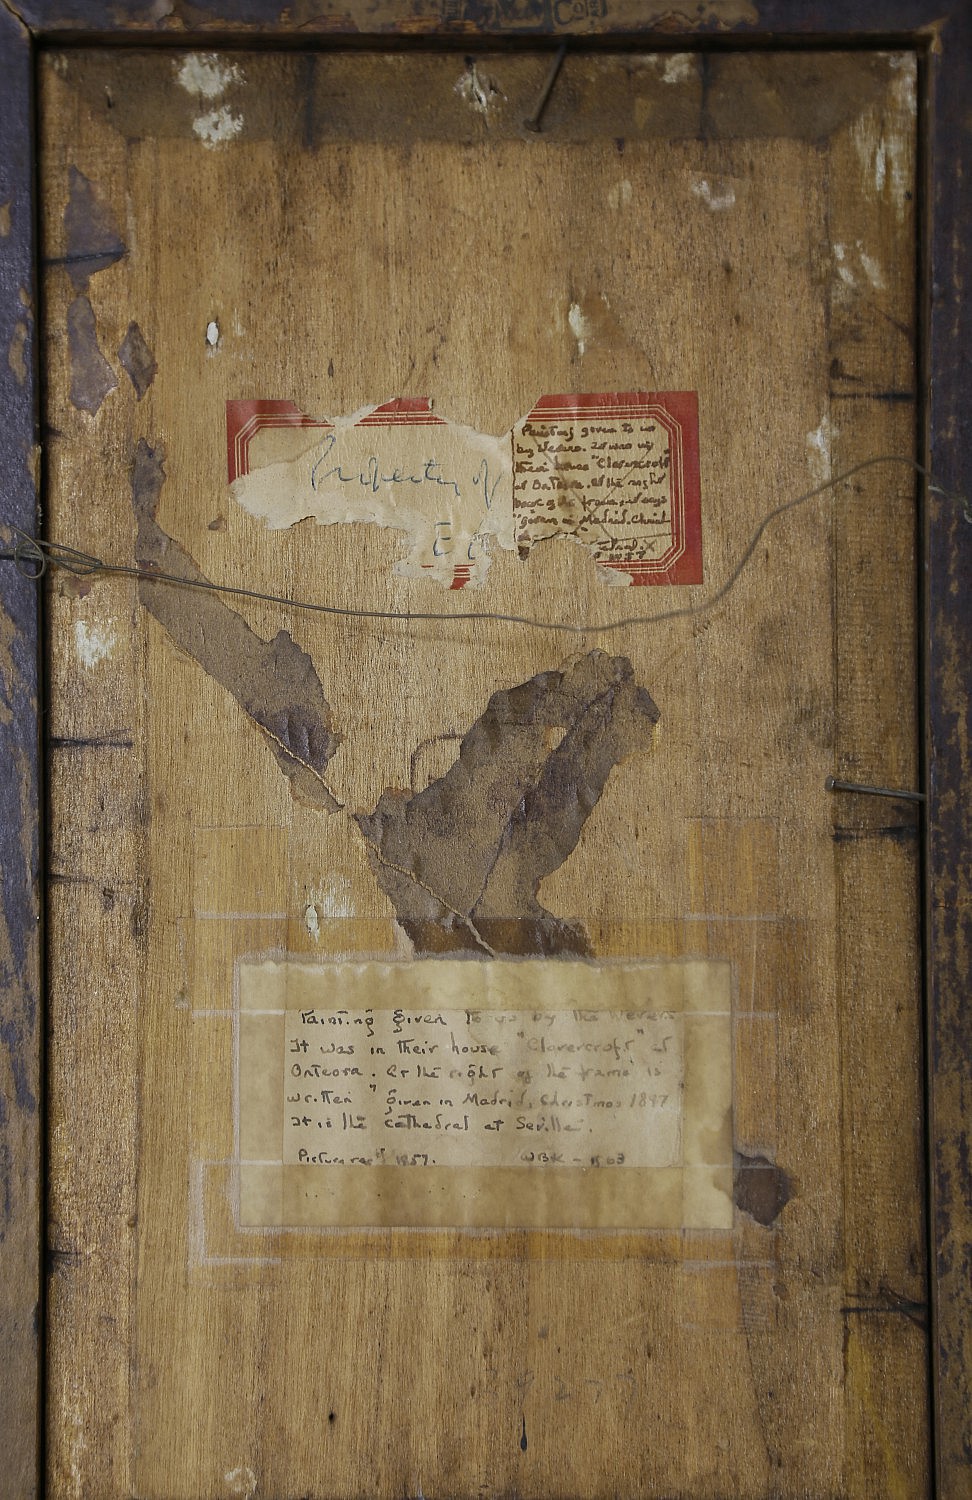 Co
Property of
E
Painting given to us
by
their house "Clovercroft"
at Onteora. At the right
back of the frame, it says
"given in Madrid. Christ
1957
Painting given to us by the Wevers
It was in their house "Clovercroft" at
Onteora. At the right of the frame is
written "given in Madrid, Christmas 1897
It is the Cathedral at Seville.
Picture 1957. WBK -